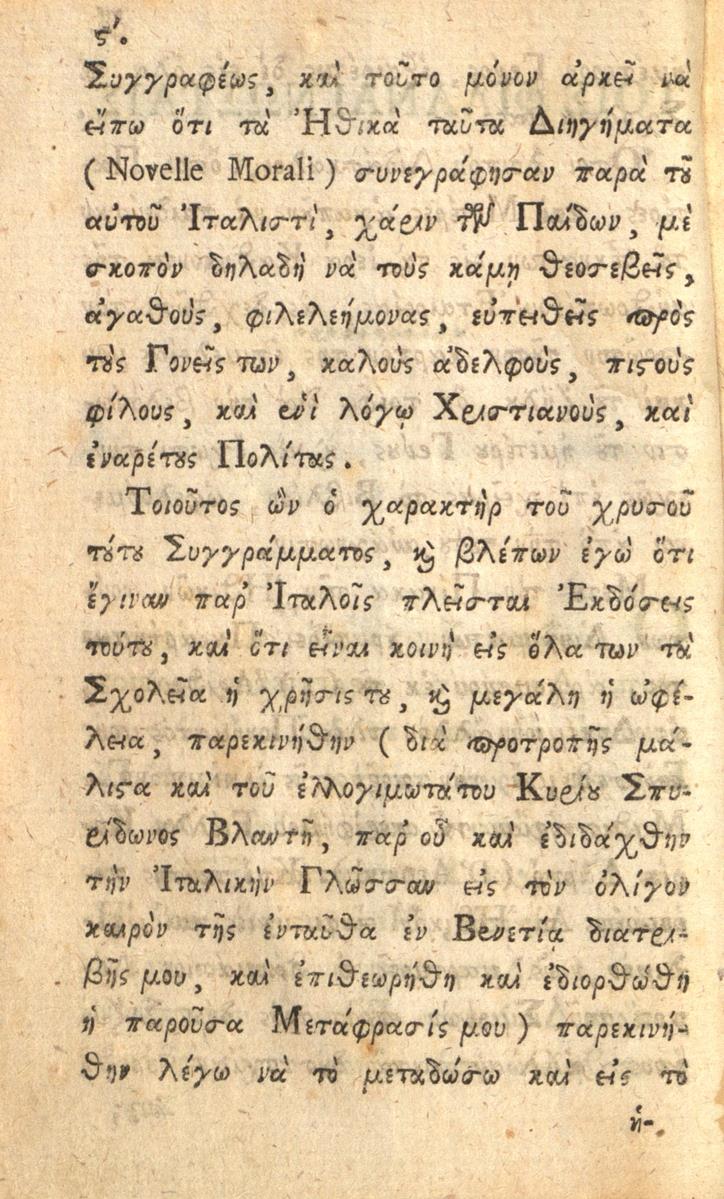 ϛ'.
Συγγραφέως, καὶ τοῦτο μόνον ἀρκεῖ νὰ
εἴπω ὅτι τὰ Ἠθικὰ ταῦτα Διηγήματα
( Novelle Morali ) συνεγράφησαν παρὰ τȣ͂
αὐτοῦ Ἰταλιστὶ, χάριν τῶν Παίδων, μὲ
σκοπὸν δηλαδὴ νὰ τοὺς κάμῃ θεοσεβεῖς,
ἀγαθοὺς, φιλελεήμονας, εὐπειθεῖς πρὸς
τȣ̀ς Γονεῖς των, καλοὺς ἀδελφοὺς, πιϛοὺς
φίλους, καὶ ἑνὶ λόγῳ Χριστιανοὺς, καὶ
ἐναρέτȣς Πολίτας.
Τοιοῦτος ὢν ὁ χαρακτὴρ τοῦ χρυσοῦ
τȣ́τȣ Συγγράμματος, ϗ̀ βλέπων ἐγὼ ὅτι
ἔγιναν παρ' Ἰταλοῖς πλεῖσται Ἐκδόσεις
τούτȣ, καὶ ὅτι εἶναι κοινὴ εἰς ὅλα των τὰ
Σχολεῖα ἡ χρῆσις τȣ, ϗ̀ μεγάλη ἡ ὠφέ-
λεια, παρεκινήθην ( διὰ προτροπῆς μά-
λιϛα καὶ τοῦ ἐλλογιμωτάτου Κυρίȣ Σπυ-
ρίδωνος Βλαντῆ, παρ' οὗ καὶ ἐδιδάχθην
τὴν Ἰταλικὴν Γλῶσσαν εἰς τὸν ὀλίγον
καιρὸν τῆς ἐνταῦθα ἐν Βενετίᾳ διατρι-
βῆς μου, καὶ ἐπιθεωρήθη καὶ ἐδιορθώθη
ἡ παροῦσα Μετάφρασίς μου ) παρεκινή-
θην λέγω νὰ τὸ μεταδώσω καὶ εἰς τὸ
ἡ-